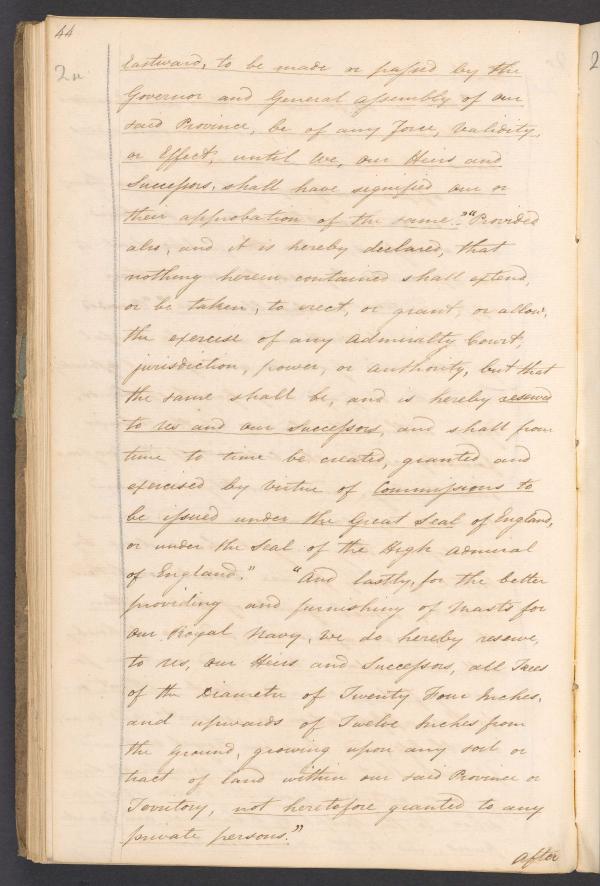 44
2
Eastward, to be made or passed by the
Governor and General Assembly of our
said Province, be of any Force, Validity,
or Effect, until We, our Heirs and
Successors, shall have signified our or
their approbation of the same." "Provided
also, and it is hereby declared, that
nothing herein contained shall extend,
or be taken, to erect, or grant, or allow,
the exercise of any Admiralty Court,
jurisdiction, power, or authority, but that
the same shall be, and is hereby reserved
to Us and our Successors, and shall from
time to time be created, granted and
exercised by virtue of Commissions to
be issued under the Great Seal of England,
or under the Seal of the High Admiral
of England." "And lastly, for the better
providing and furnishing of Masts for
our Royal Navy, We do hereby reserve,
to Us, our Heirs and Successors, all Trees
of the Diameter of Twenty Four Inches,
and upwards of Twelve Inches from
the ground, growing upon any soil or
tract of land within our said Province or
Territory, not heretofore granted to any
private persons."
After
2